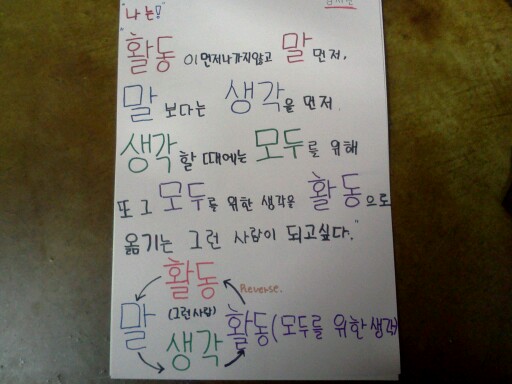 "나는!"
활동이 먼저나가지않고 말먼저,
말보다는 생각을 먼저.
생각할때에는 모두를 위해
또 그 모두를 위한 생각을 활동으로
옮기는 그런 사람이 되고싶다."
활동
Reverse.
말 (그런사람) 활동(모두를 위한생각)
생각